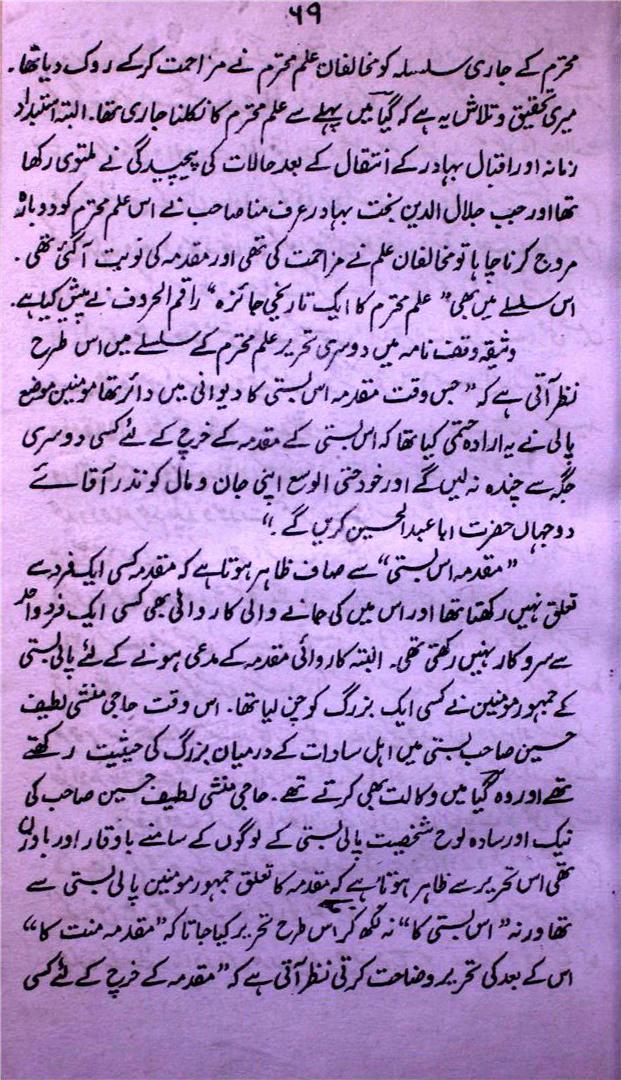 ۶۹
محرم کے جاری سلسلہ کو مخالفان علم محترم نے مزاحمت کرکے روک دیا تھا۔
میری تحقیق و تلاش یہ ہے کہ گیا میں پہلے سے علم محترم کا نکلنا جاری تھا۔ البتہ استبداد
زمانہ اور اقبال بہادر کے انتقال کے بعد حالات کی پیچیدگی نے ملتوی رکھا
تھا اور جب جلال الدین بخت بہادر عرف منا صاحب نے اس علم محترم کو دوبارہ
مروج کرنا چاہا تو مخالفان علم نے مزاحمت کی تھی اور مقدمہ کی نوبت آگئی تھی۔
اس سلسلے میں بھی ”علم محترم کا ایک تاریخی جائزہ“ راقم الحروف نے پیش کیا ہے۔
وثیقہ وقف نامہ میں دوسری تحریر علم محترم کے سلسلے میں اس طرح
نظر آتی ہے کہ ”جس وقت مقدمہ اس بستی کا دیوانی میں دائر تھا مومنین موضع
پالی نے یہ ارادہ حتمی کیا تھا کہ اس بستی کے مقدمہ کے خرچ کے لئے کسی دوسری
جگہ سے چندہ نہ لیں گے اور خود حتی الوسع اپنی جان و مال کو نذر آقائے
دوجہاں حضرت ابا عبد الحسین کریں گے۔“
”مقدمہ اس بستی“ سے صاف ظاہر ہوتا ہے کہ مقدمہ کسی ایک فرد سے
تعلق نہیں رکھتا تھا اور اس میں کی جانے والی کاروائی بھی کسی ایک فرد واحد
سے سروکار نہیں رکھتی تھی۔ البتہ کاروائی مقدمہ کے مدعی ہونے کے لئے پالی بستی
کے جمہور مومنین نے کسی ایک بزرگ کو چن لیا تھا۔ اس وقت حاجی منشی لطیف
حسین صاحب بستی میں اہل سادات کے درمیان بزرگ کی حیثیت رکھتے
تھے اور وہ گیا میں وکالت بھی کرتے تھے۔ حاجی منشی لطیف حسین صاحب کی
نیک اور سادہ لوح شخصیت پالی بستی کے لوگوں کے سامنے باوقار اور باوزن
تھی اس تحریر سے ظاہر ہوتا ہے کہ مقدمہ کا تعلق جمہور مومنین پالی بستی سے
تھا ورنہ ”اس بستی کا“ نہ لکھ کر اس طرح تحریر کیا جاتا کہ ”مقدمہ منت کا“
اس کے بعد کی تحریر وضاحت کرتی نظر آتی ہے کہ ”مقدمہ کے خرچ کے لئے کسی